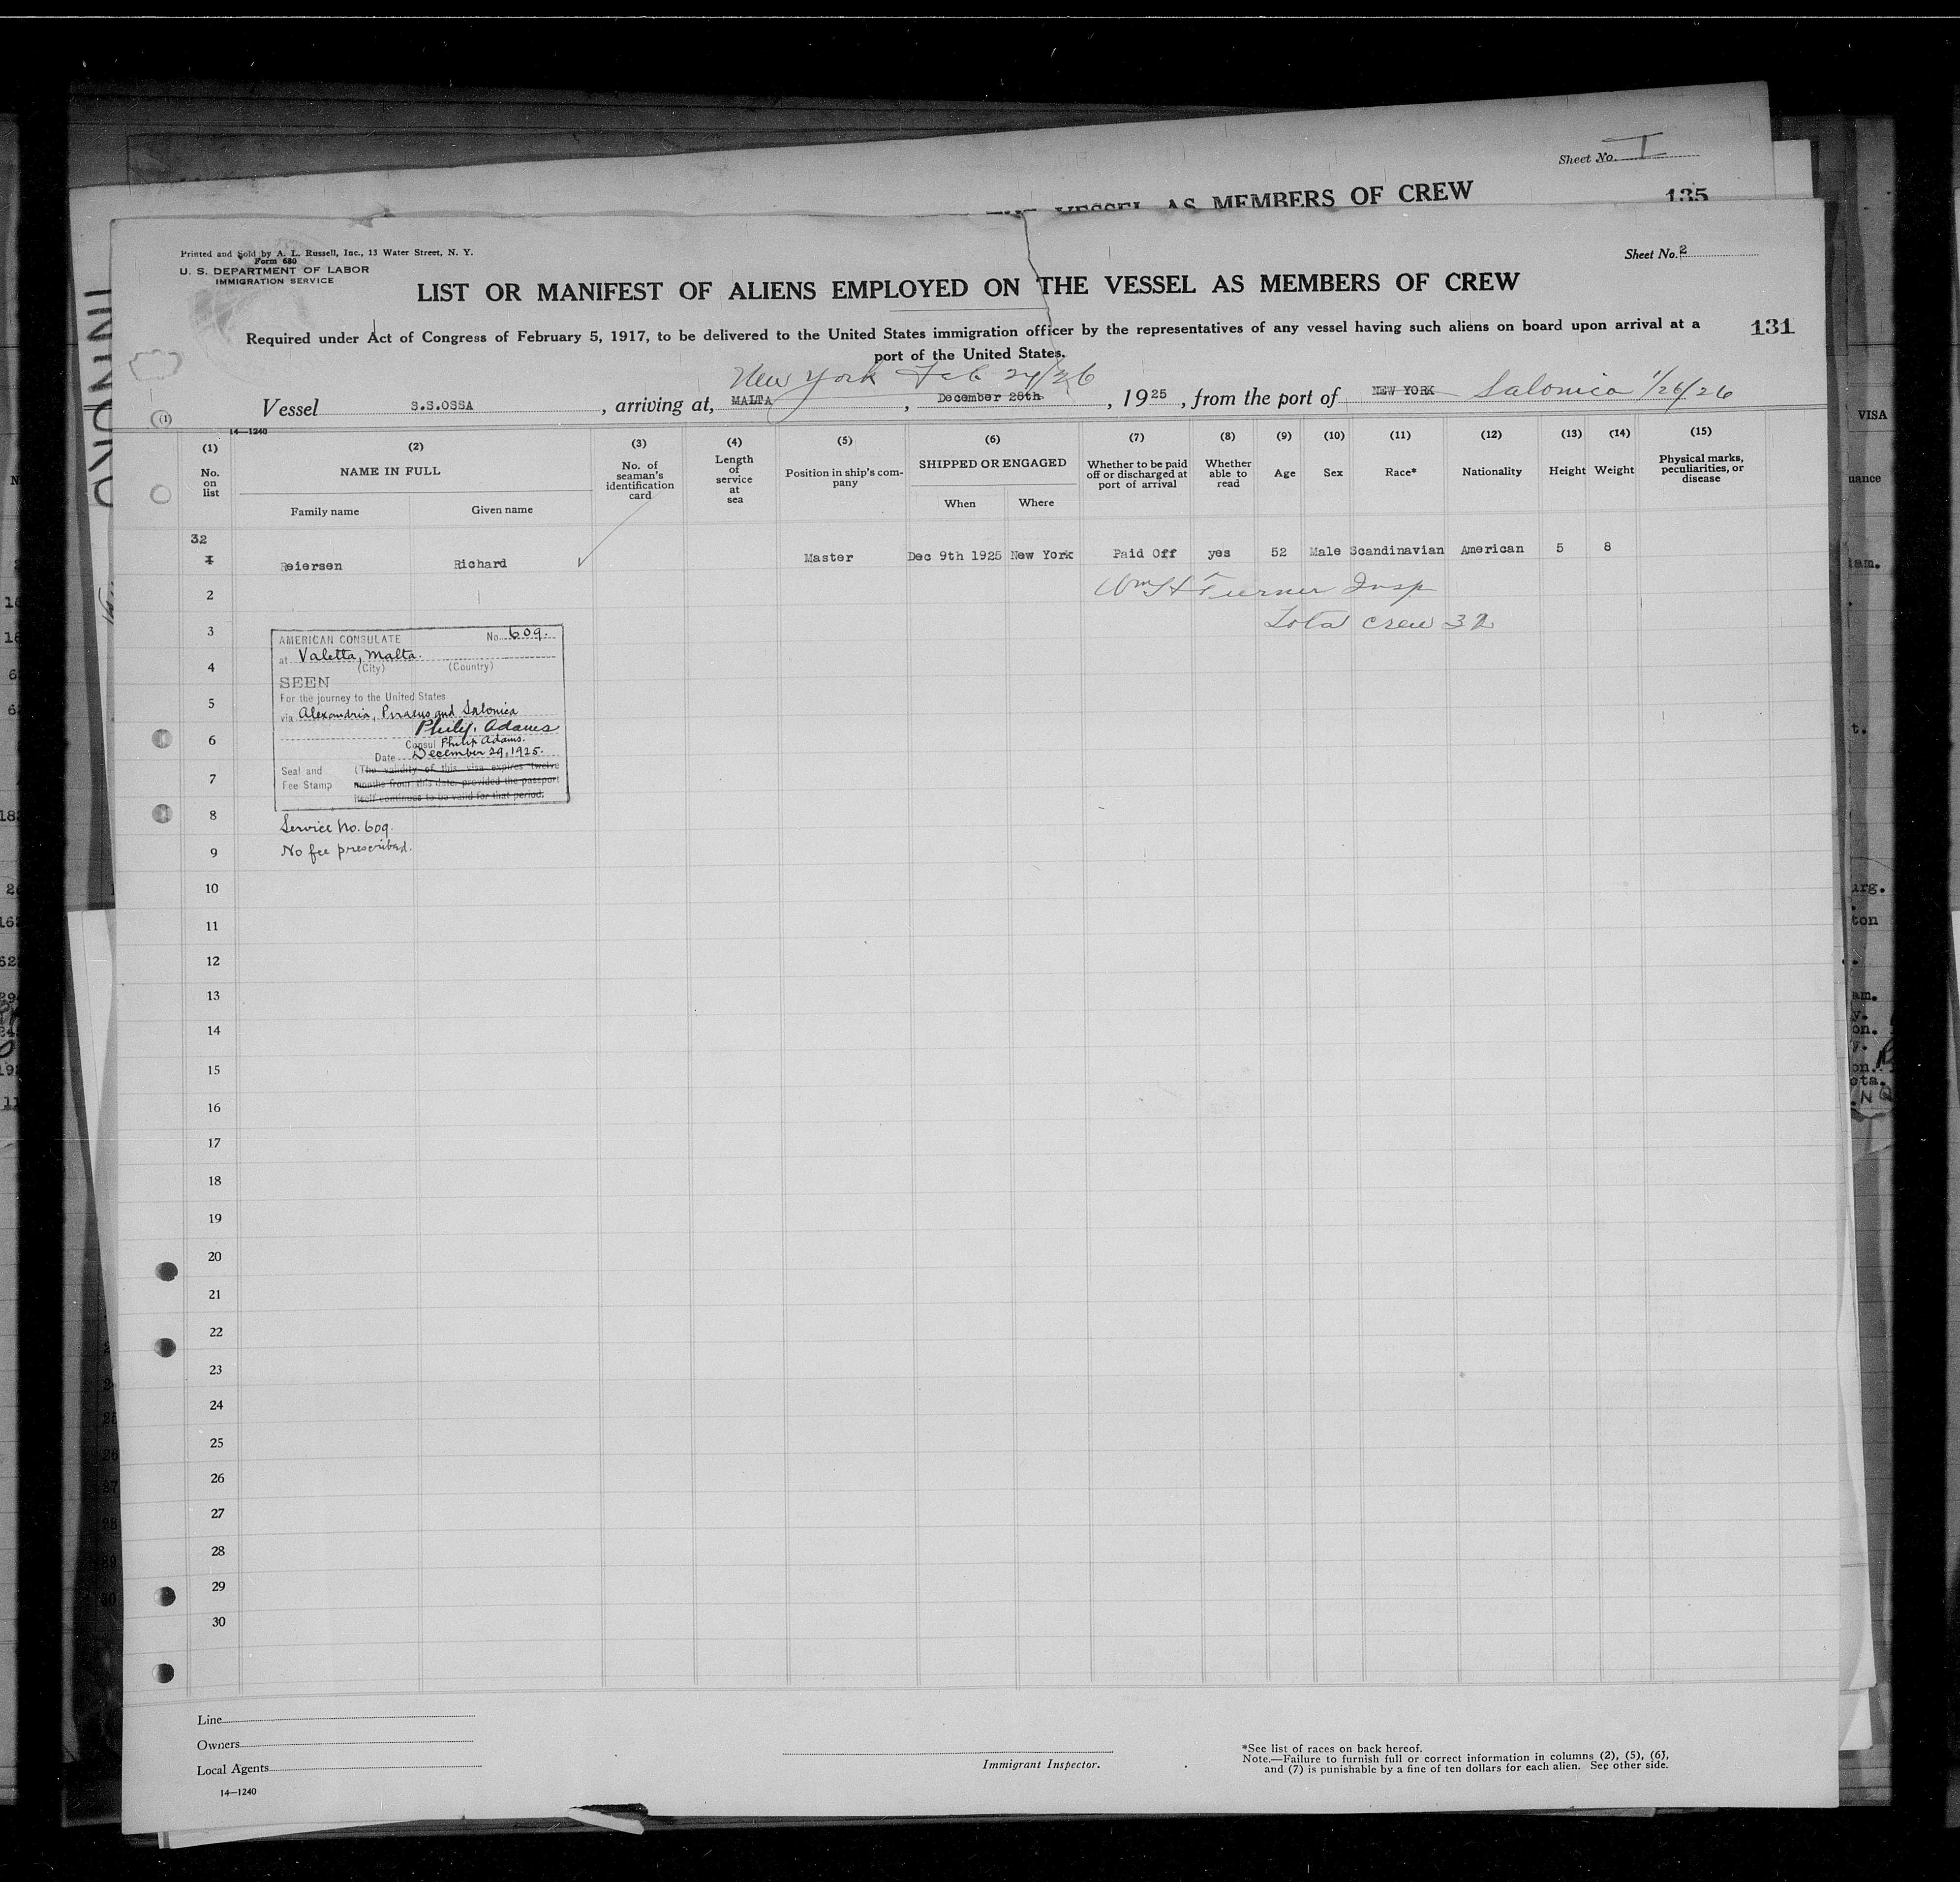 Sheet No. I
THE VESSEL AS MEMBERS OF CREW
135
Printed and Sold by A. L. Russell, Inc., 13 Water Street, N. Y.
Form 680
U. S. DEPARTMENT OF LABOR
IMMIGRATION SERVICE
Sheet No. 2
LIST OR MANIFEST OF ALIENS EMPLOYED ON THE VESSEL AS MEMBERS OF CREW
Required under Act of Congress of February 5, 1917, to be delivered to the United States immigration officer by the representatives of any vessel having such aliens on board upon arrival at a
port of the United States.
131
New York Feb 24/26
Vessel S.S.OSSA, arriving at, MALTA, December 28th, 1925, from the port of NEW YORK Salonica 1/26/26
14—1240
(1) (2) (3) (4) (5) (6) (7) (8) (9) (10) (11) (12) (13) (14) (15)
No. on list
NAME IN FULL
Family name
Given name
No. of seaman's identification card
Length of service at sea
Position in ship's company
SHIPPED OR ENGAGED
When
Where
Whether to be paid off or discharged at port of arrival
Whether able to read
Age
Sex
Race*
Nationality
Height
Weight
Physical marks, peculiarities, or disease
32
1 Reiersen Richard ✓ Master Dec 9th 1925 New York Paid Off yes 52 Male Scandinavian American 5 8
2
Wm H Turner Insp
3
Total crew 32
AMERICAN CONSULATE No. 609.
at Valetta, Malta.
(City) (Country)
4
SEEN
For the journey to the United States
5
via Alexandria, Piraeus and Salonica
Philip Adams
6
Consul Philip Adams.
Date December 29, 1925.
7
Seal and
Fee Stamp
(The validity of this visa expires twelve
months from this date, provided the passport
itself continues to be valid for that period.
8
Service No. 609.
9
No fee prescribed.
10
11
12
13
14
15
16
17
18
19
20
21
22
23
24
25
26
27
28
29
30
Line
Owners
Local Agents
14—1240
Immigrant Inspector.
*See list of races on back hereof.
Note.—Failure to furnish full or correct information in columns (2), (5), (6),
and (7) is punishable by a fine of ten dollars for each alien. See other side.
VISA